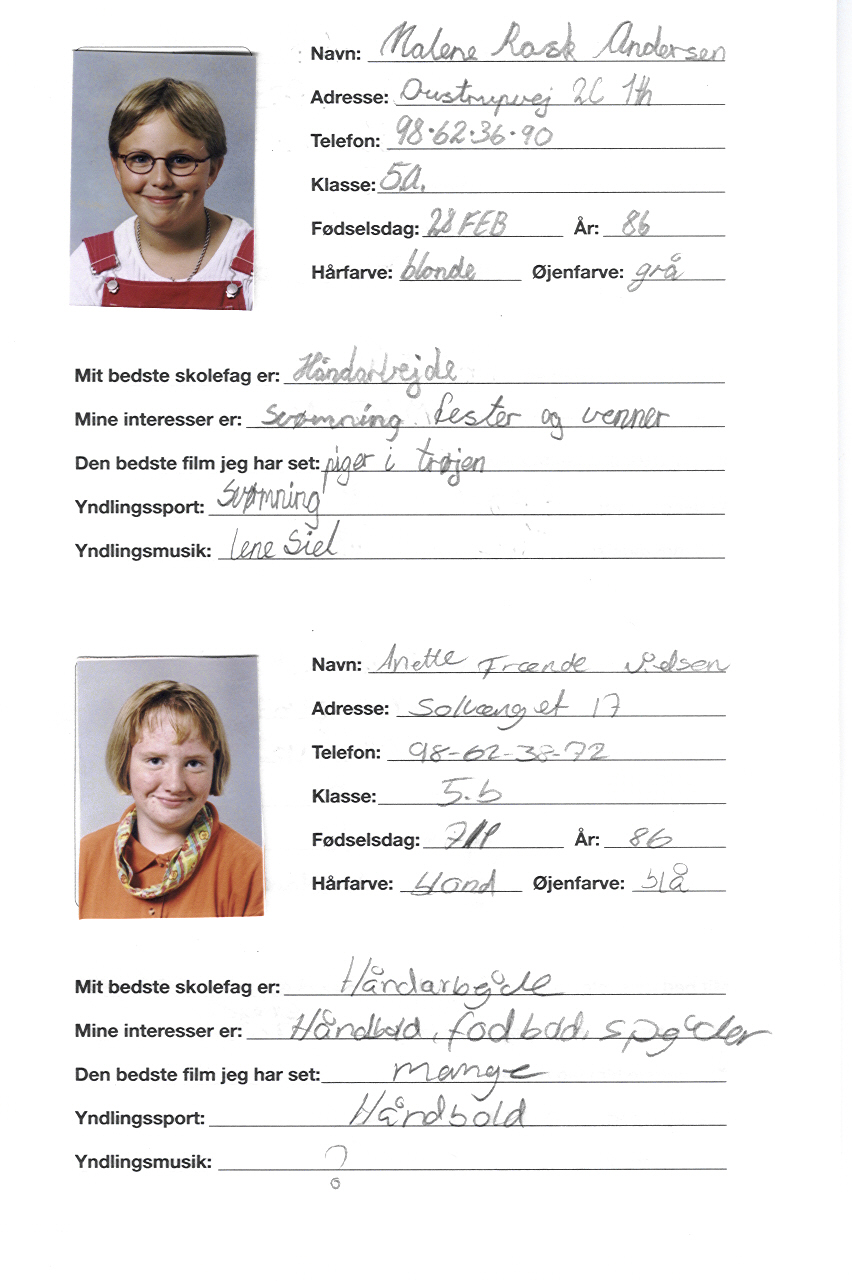 Navn: Malene Rask Andersen
Adresse: Oustrupvej 2C 1th
Telefon: 98·62·36·90
Klasse: 5A.
Fødselsdag: 28 FEB År: 86
Hårfarve: blonde Øjenfarve: grå
Mit bedste skolefag er: Håndarbejde
Mine interesser er: Svømning fester og venner
Den bedste film jeg har set: piger i trøjen
Yndlingssport: Svømning
Yndlingsmusik: lene Siel
Navn: Anette Frænde Nielsen
Adresse: Solvænget 17
Telefon: 98-62-38-72
Klasse: 5.b
Fødselsdag: År: 86
Hårfarve: blond Øjenfarve: blå
Mit bedste skolefag er: Håndarbejde
Mine interesser er: Håndbold, fodbold, spejder
Den bedste film jeg har set: mange
Yndlingssport: Håndbold
Yndlingsmusik: ?